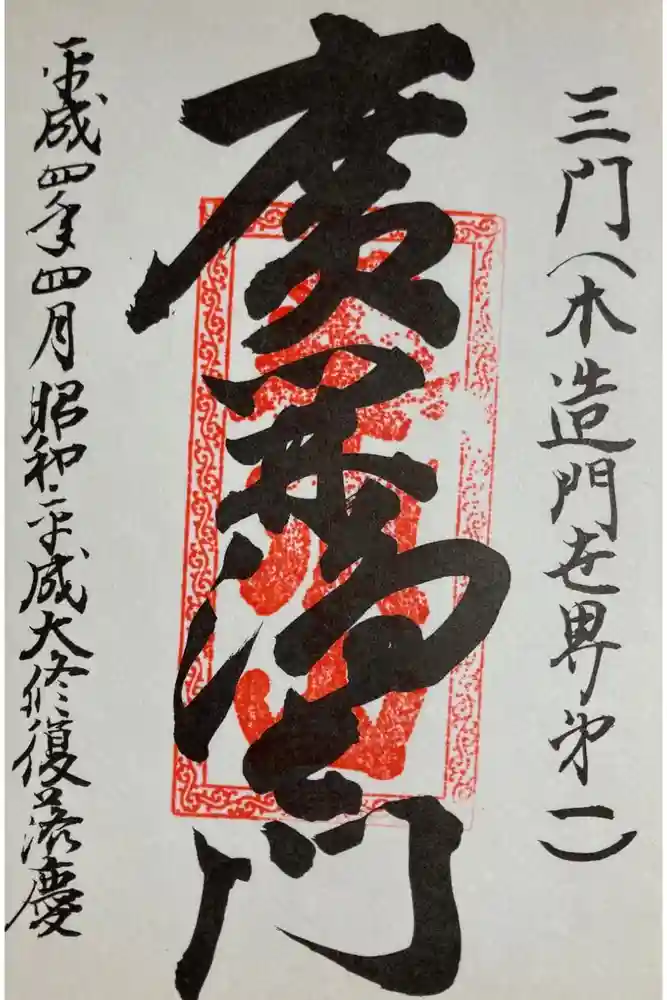 三門（木造門世界第一）
廣開浄土門
平成四年四月 昭和・平成大修復落慶